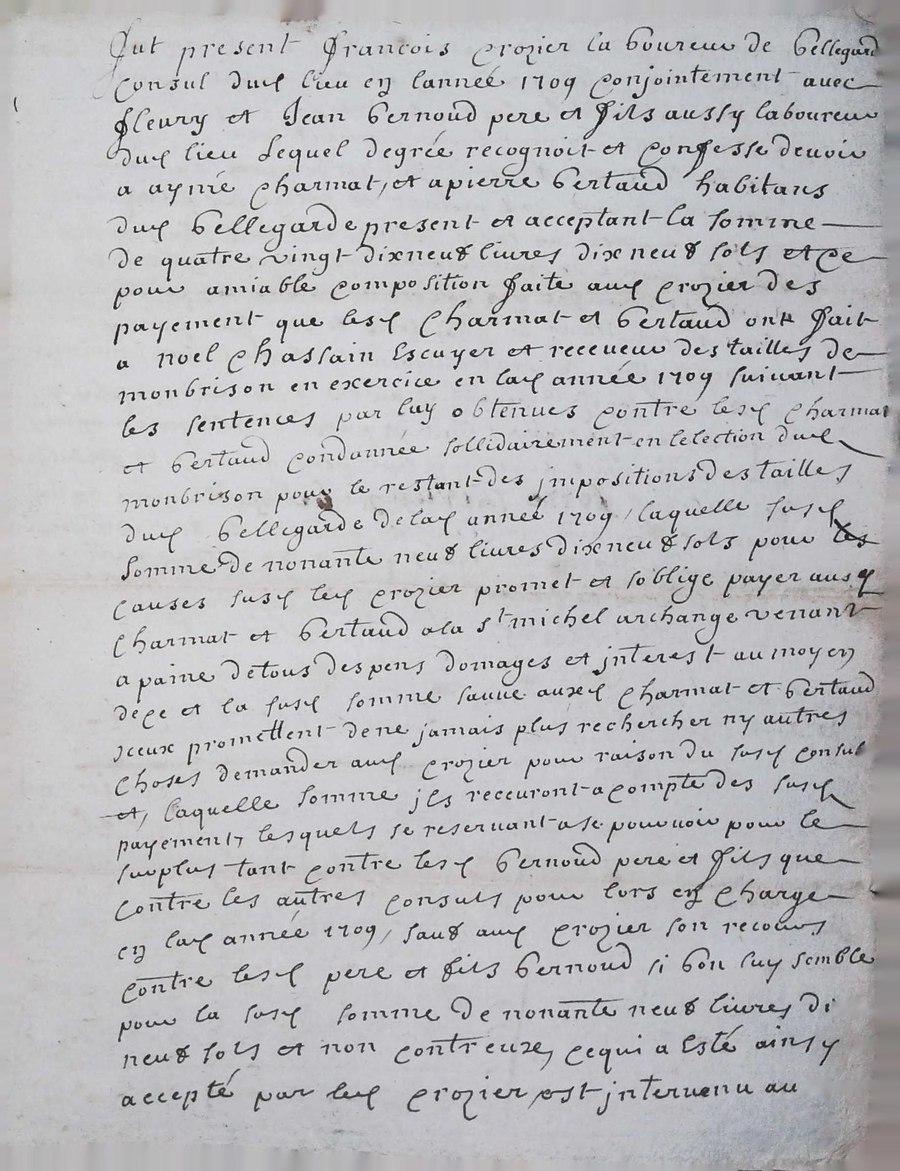 fut present françois crozier laboureur de bellegard
consul dud lieu en lannée 1709 conjointement avec
fleury et Jean bernoud pere et fils aussy laboureur
dud lieu Lequel degrée recognoit et confesse devoir
a aymé charmat, et a pierre bertaud habitans
dud bellegarde present et acceptant la somme
de quatre vingt dixneuf livres dix neuf sols et ce
pour amiable composition faite aud crozier des
payement que lesd charmat et bertaud ont fait
a noel chassain Escuyer et receveur des tailles de
monbrison en exercice en lad année 1709 suivant
les sentences par luy obtenues contre lesd charmat
et bertaud condannée sollidairement en lelection dud
monbrison pour le restant des jmpositions des tailles
dud bellegarde de lad année 1709, laquelle susd
somme de nonante neuf livres dixneuf sols pour les
causes susd led crozier promet et soblige payer ausd
charmat et bertaud a la st michel archange venant
a paine de tous despens domages et jnterest au moyen
de ce et la susd somme sauve auxd charmat et bertaud
jceux promettent de ne jamais plus rechercher ny autres
choses demander aud crozier pour raison du susd consul
et, laquelle somme jls recevront a compte des susd
payement, lesquels se reservant a se pourvoir pour le
surplus tant contre lesd bernoud pere et fils que
contre les autres consuls pour lors en charge
en lad année 1709, sauf aud crozier son recours
contre lesd pere et fils bernoud si bon luy semble
pour la susd somme de nonante neuf livres di
neuf sols et non contre eux, ce qui a Esté ainsy
accepté par led crozier, est jntervenu au